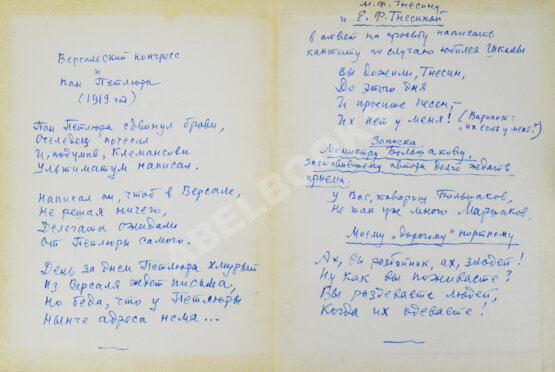 Версальский конгресс
и
пан Петлюра
(1919 год)
Пан Петлюра сдвинул брови,
Оселедец почесал
И, подумав, Клемансови
Ультиматум написал.
Написал он, чтоб в Версале,
Не решая ничего,
Делегата ожидали
От Петлюры самого.
День за днем Петлюра хмурый
Из Версаля ждет письма,
Но беда, что у Петлюры
Нынче адреса нема...
М.Ф. Гнесину
и Е.Ф. Гнесиной
в ответ на просьбу написать
кантату по случаю юбилея школы
Вы дожили, Гнесин,
До этого дня
И просите песен,–
Их нет у меня! (Вариант:
"их есть у меня!")
Записка
Министру Большакову,
заставившему автора долго ждать
приема.
У Вас, товарищ Большаков,
Не так уж много Маршаков.
Моему "дорогому" портному
Ах, вы разбойник, ах, злодей!
Ну как вы поживаете?
Вы раздеваете людей,
Когда их одеваете!